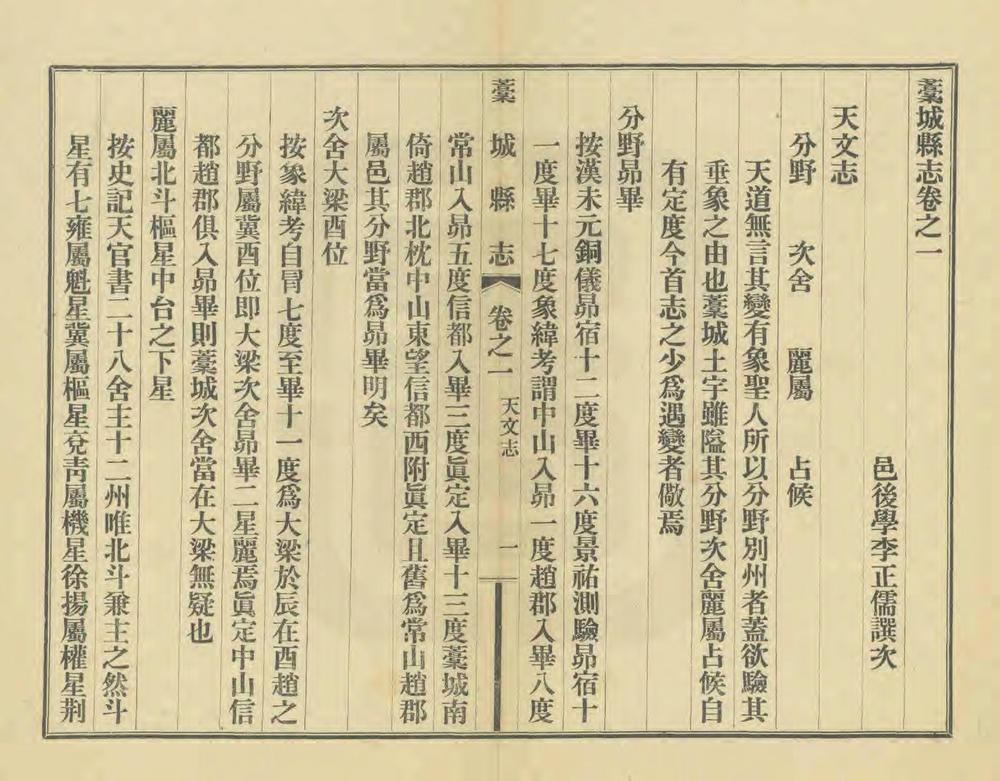 藁城縣志卷之一
邑後學李正儒譔次
天文志
分野　次舍　麗屬　占候
天道無言其變有象聖人所以分野別州者蓋欲驗其
垂象之由也藁城土宇雖隘其分野次舍麗屬占候自
有定度今首志之少爲遇變者儆焉
分野昴畢
按漢未元銅儀昴宿十二度畢十六度景祐測驗昴宿十
一度畢十七度象緯考謂中山入昴一度趙郡入畢八度
藁城縣志　卷之一　天文志　一
常山入昴五度信都入畢三度眞定入畢十三度藁城南
倚趙郡北枕中山東望信都西附眞定且舊爲常山趙郡
屬邑其分野當爲昴畢明矣
次舍大梁酉位
按象緯考自胃七度至畢十一度爲大梁於辰在酉趙之
分野屬冀酉位即大梁次舍昴畢二星麗焉眞定中山信
都趙郡俱入昴畢則藁城次舍當在大梁無疑也
麗屬北斗樞星中台之下星
按史記天官書二十八舍主十二州唯北斗兼主之然斗
星有七雍屬魁星冀屬樞星兗靑屬機星徐揚屬權星荆